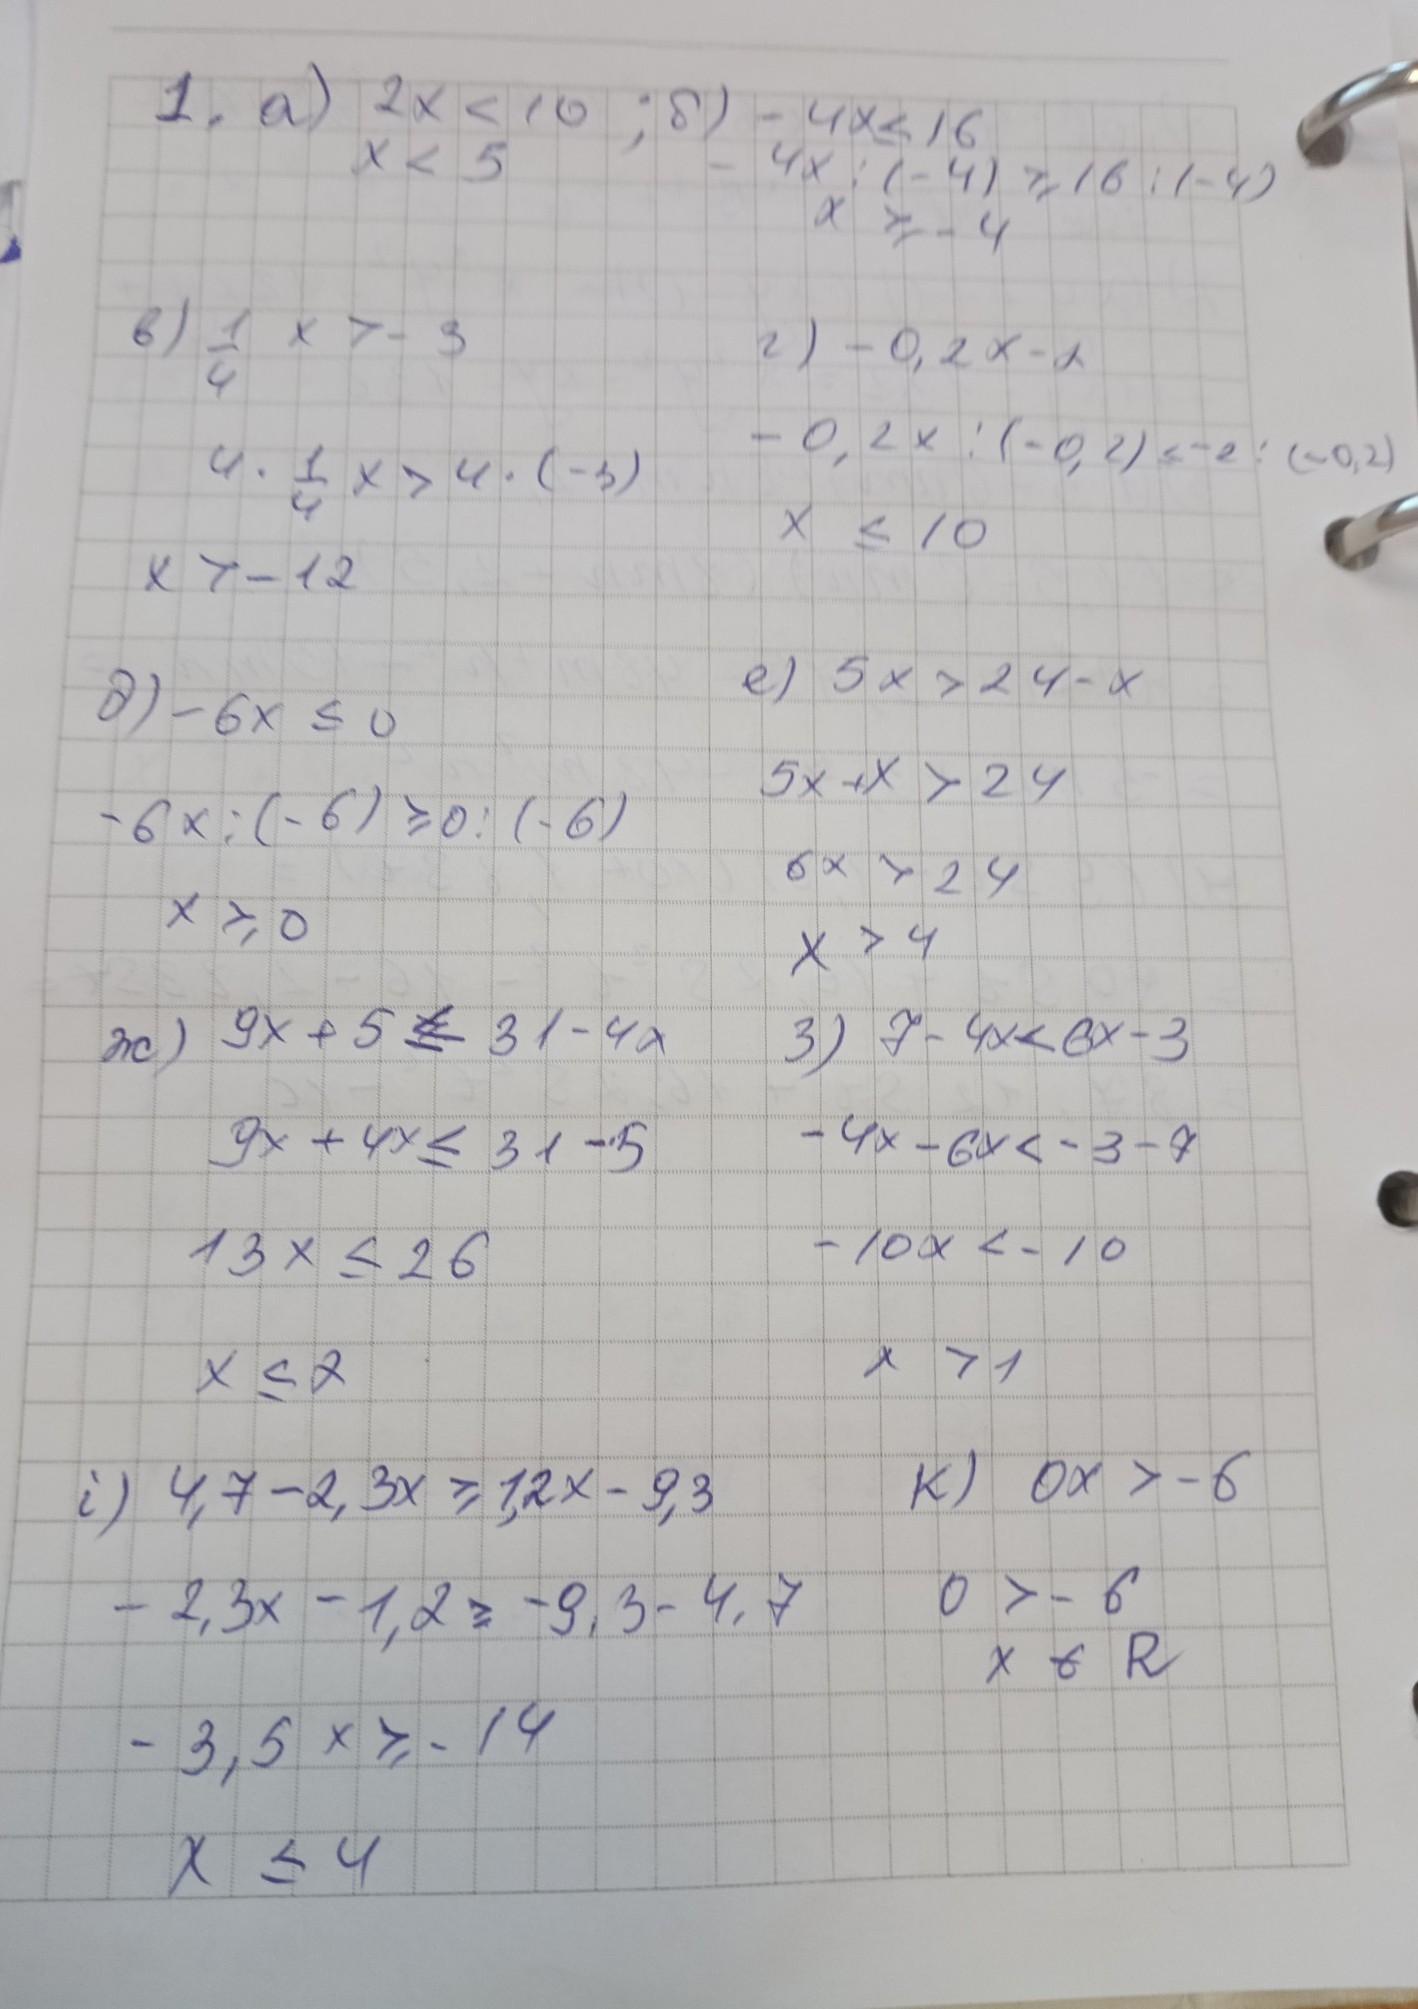 1. а) 2x < 10 ; б) - 4x ≤ 16
x < 5
- 4x : (-4) ≥ 16 : (-4)
x ≥ - 4
в) 1/4 x > - 3
г) - 0,2x - 2
4 · 1/4 x > 4 · (-3)
- 0,2x : (-0,2) ≤ -2 : (-0,2)
x > - 12
x ≤ 10
д) - 6x ≤ 0
е) 5x > 24 - x
- 6x : (-6) ≥ 0 : (-6)
5x + x > 24
x ≥ 0
6x > 24
x > 4
ж) 9x + 5 ≤ 31 - 4x
з) 7 - 4x < 6x - 3
9x + 4x ≤ 31 - 5
- 4x - 6x < - 3 - 7
13x ≤ 26
- 10x < - 10
x ≤ 2
x > 1
і) 4,7 - 2,3x ≥ 1,2x - 9,3
к) 0x > - 6
- 2,3x - 1,2 ≥ - 9,3 - 4,7
0 > - 6
x є R
- 3,5x ≥ - 14
x ≤ 4